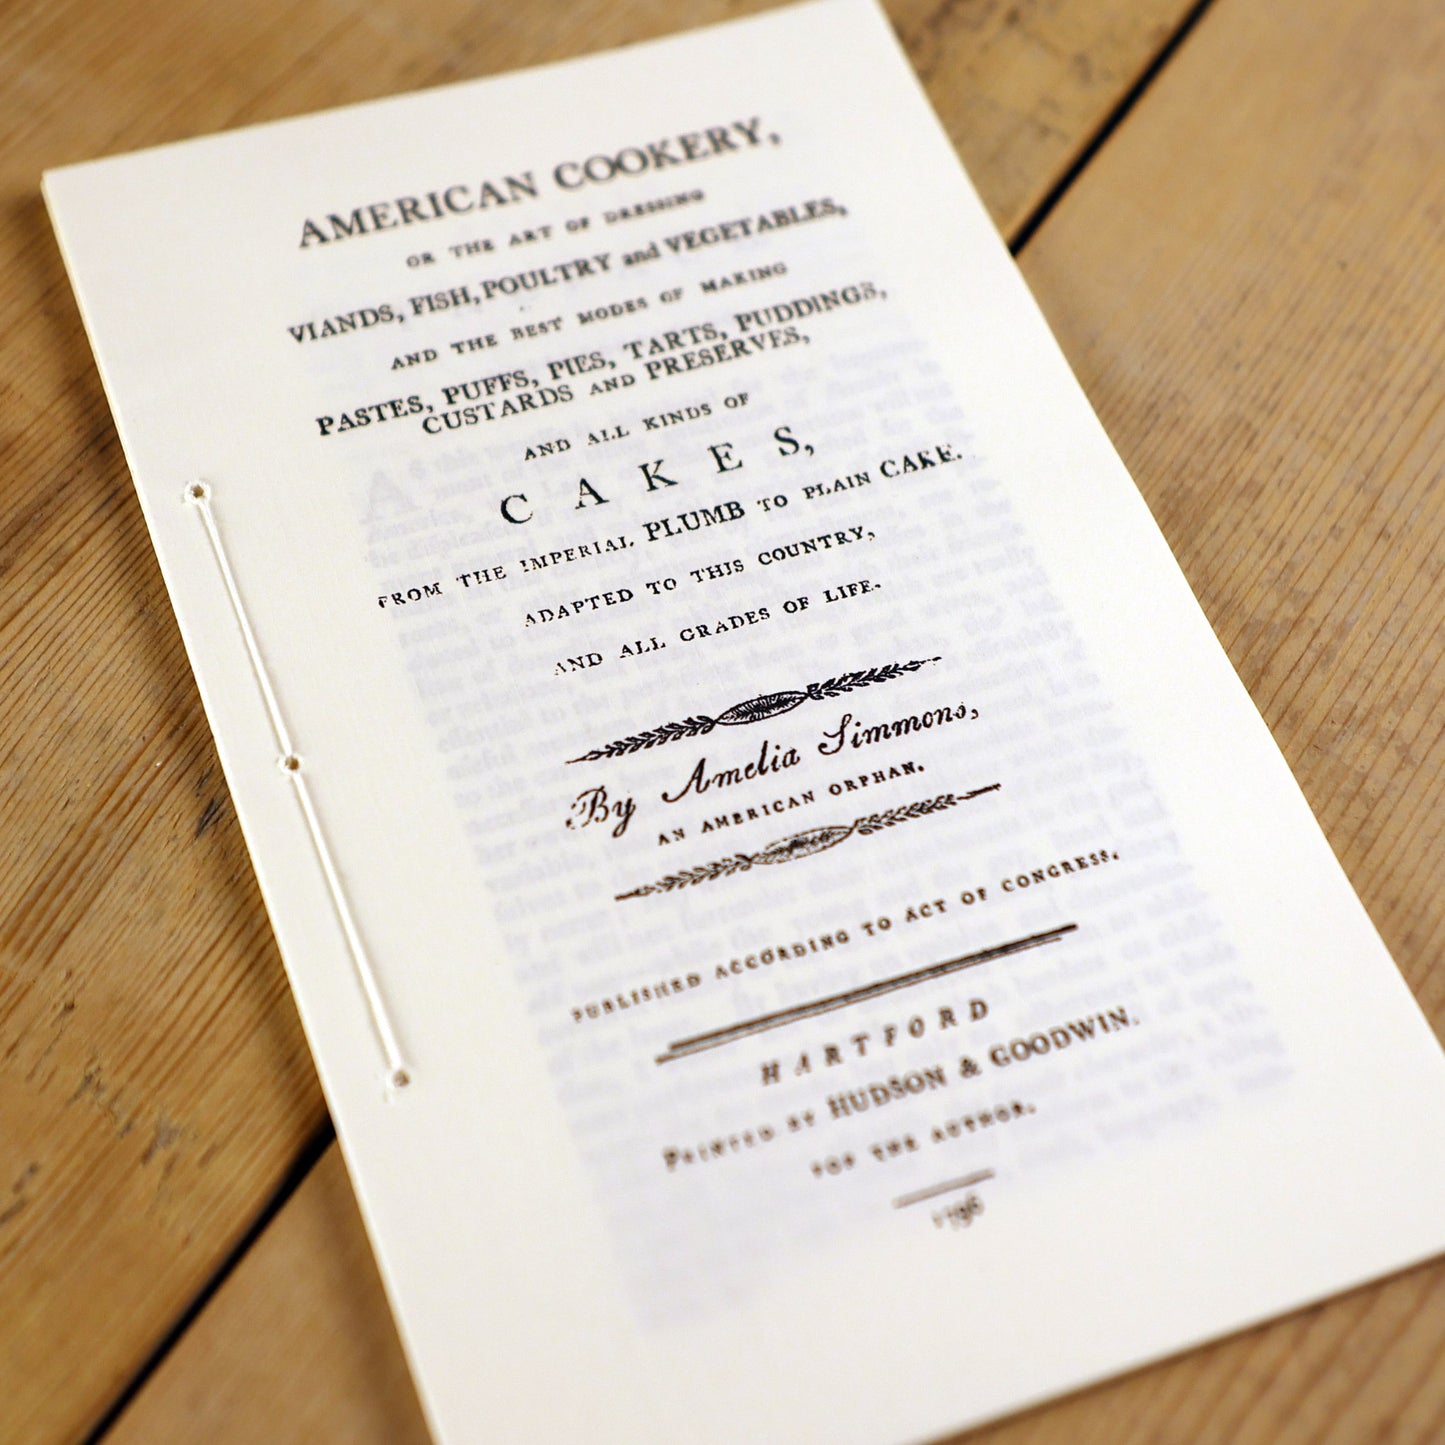 AMERICAN COOKERY,
OR THE ART OF DRESSING
VIANDS, FISH, POULTRY and VEGETABLES,
AND THE BEST MODES OF MAKING
PASTES, PUFFS, PIES, TARTS, PUDDINGS,
CUSTARDS AND PRESERVES,
AND ALL KINDS OF
CAKES,
FROM THE IMPERIAL PLUMB TO PLAIN CAKE.
ADAPTED TO THIS COUNTRY,
AND ALL GRADES OF LIFE.
By Amelia Simmons,
AN AMERICAN ORPHAN.
PUBLISHED ACCORDING TO ACT OF CONGRESS.
HARTFORD
PRINTED BY HUDSON & GOODWIN.
FOR THE AUTHOR.
1796